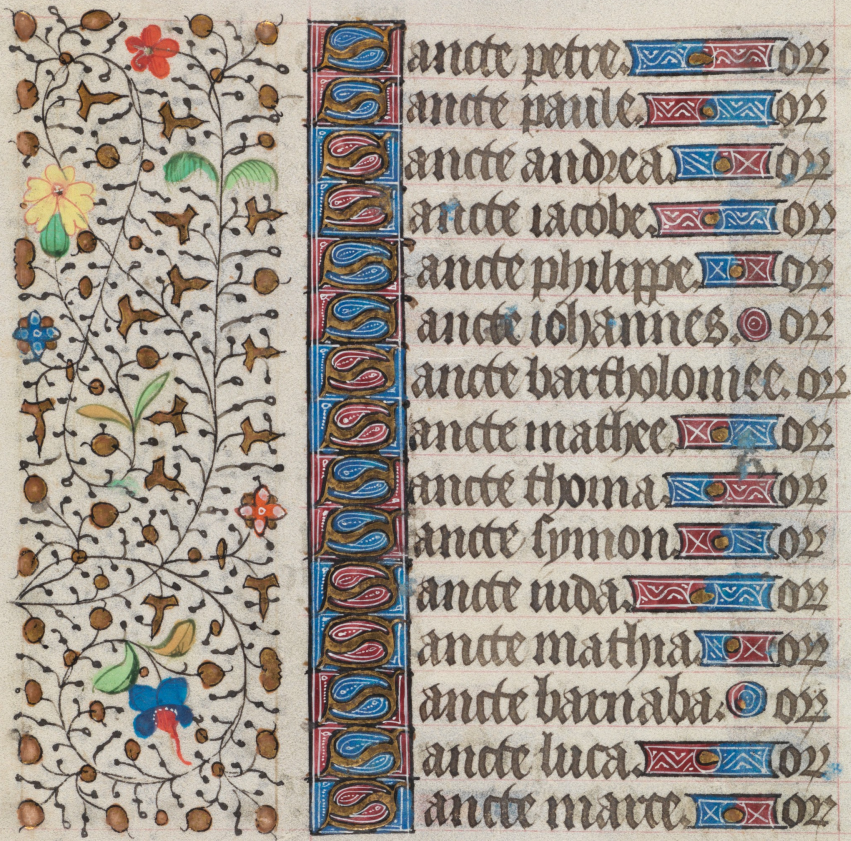 Sancte petre. or
Sancte paule. or
Sancte andrea. or
Sancte iacobe. or
Sancte philippe. or
Sancte iohannes. or
Sancte bartholomee. or
Sancte mathee. or
Sancte thoma. or
Sancte symon. or
Sancte iuda. or
Sancte mathia. or
Sancte barnaba. or
Sancte luca. or
Sancte marce. or